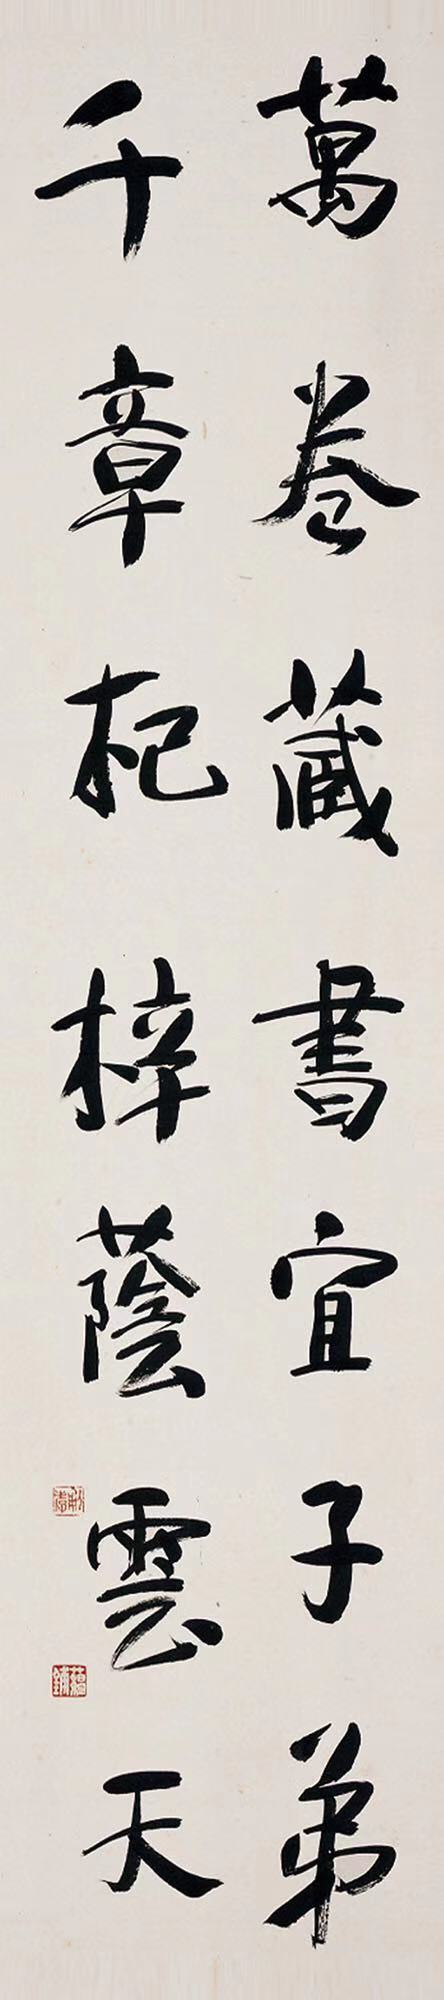 萬卷藏書宜子弟
千章杞梓蔭雲天